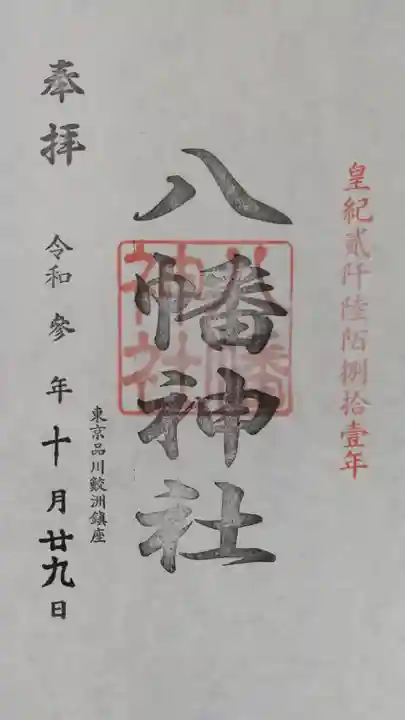 皇紀貳阡陸陌捌拾壹年
八幡神社
八幡神社
東京品川鮫洲鎮座
奉拝
令和參年十月廿九日